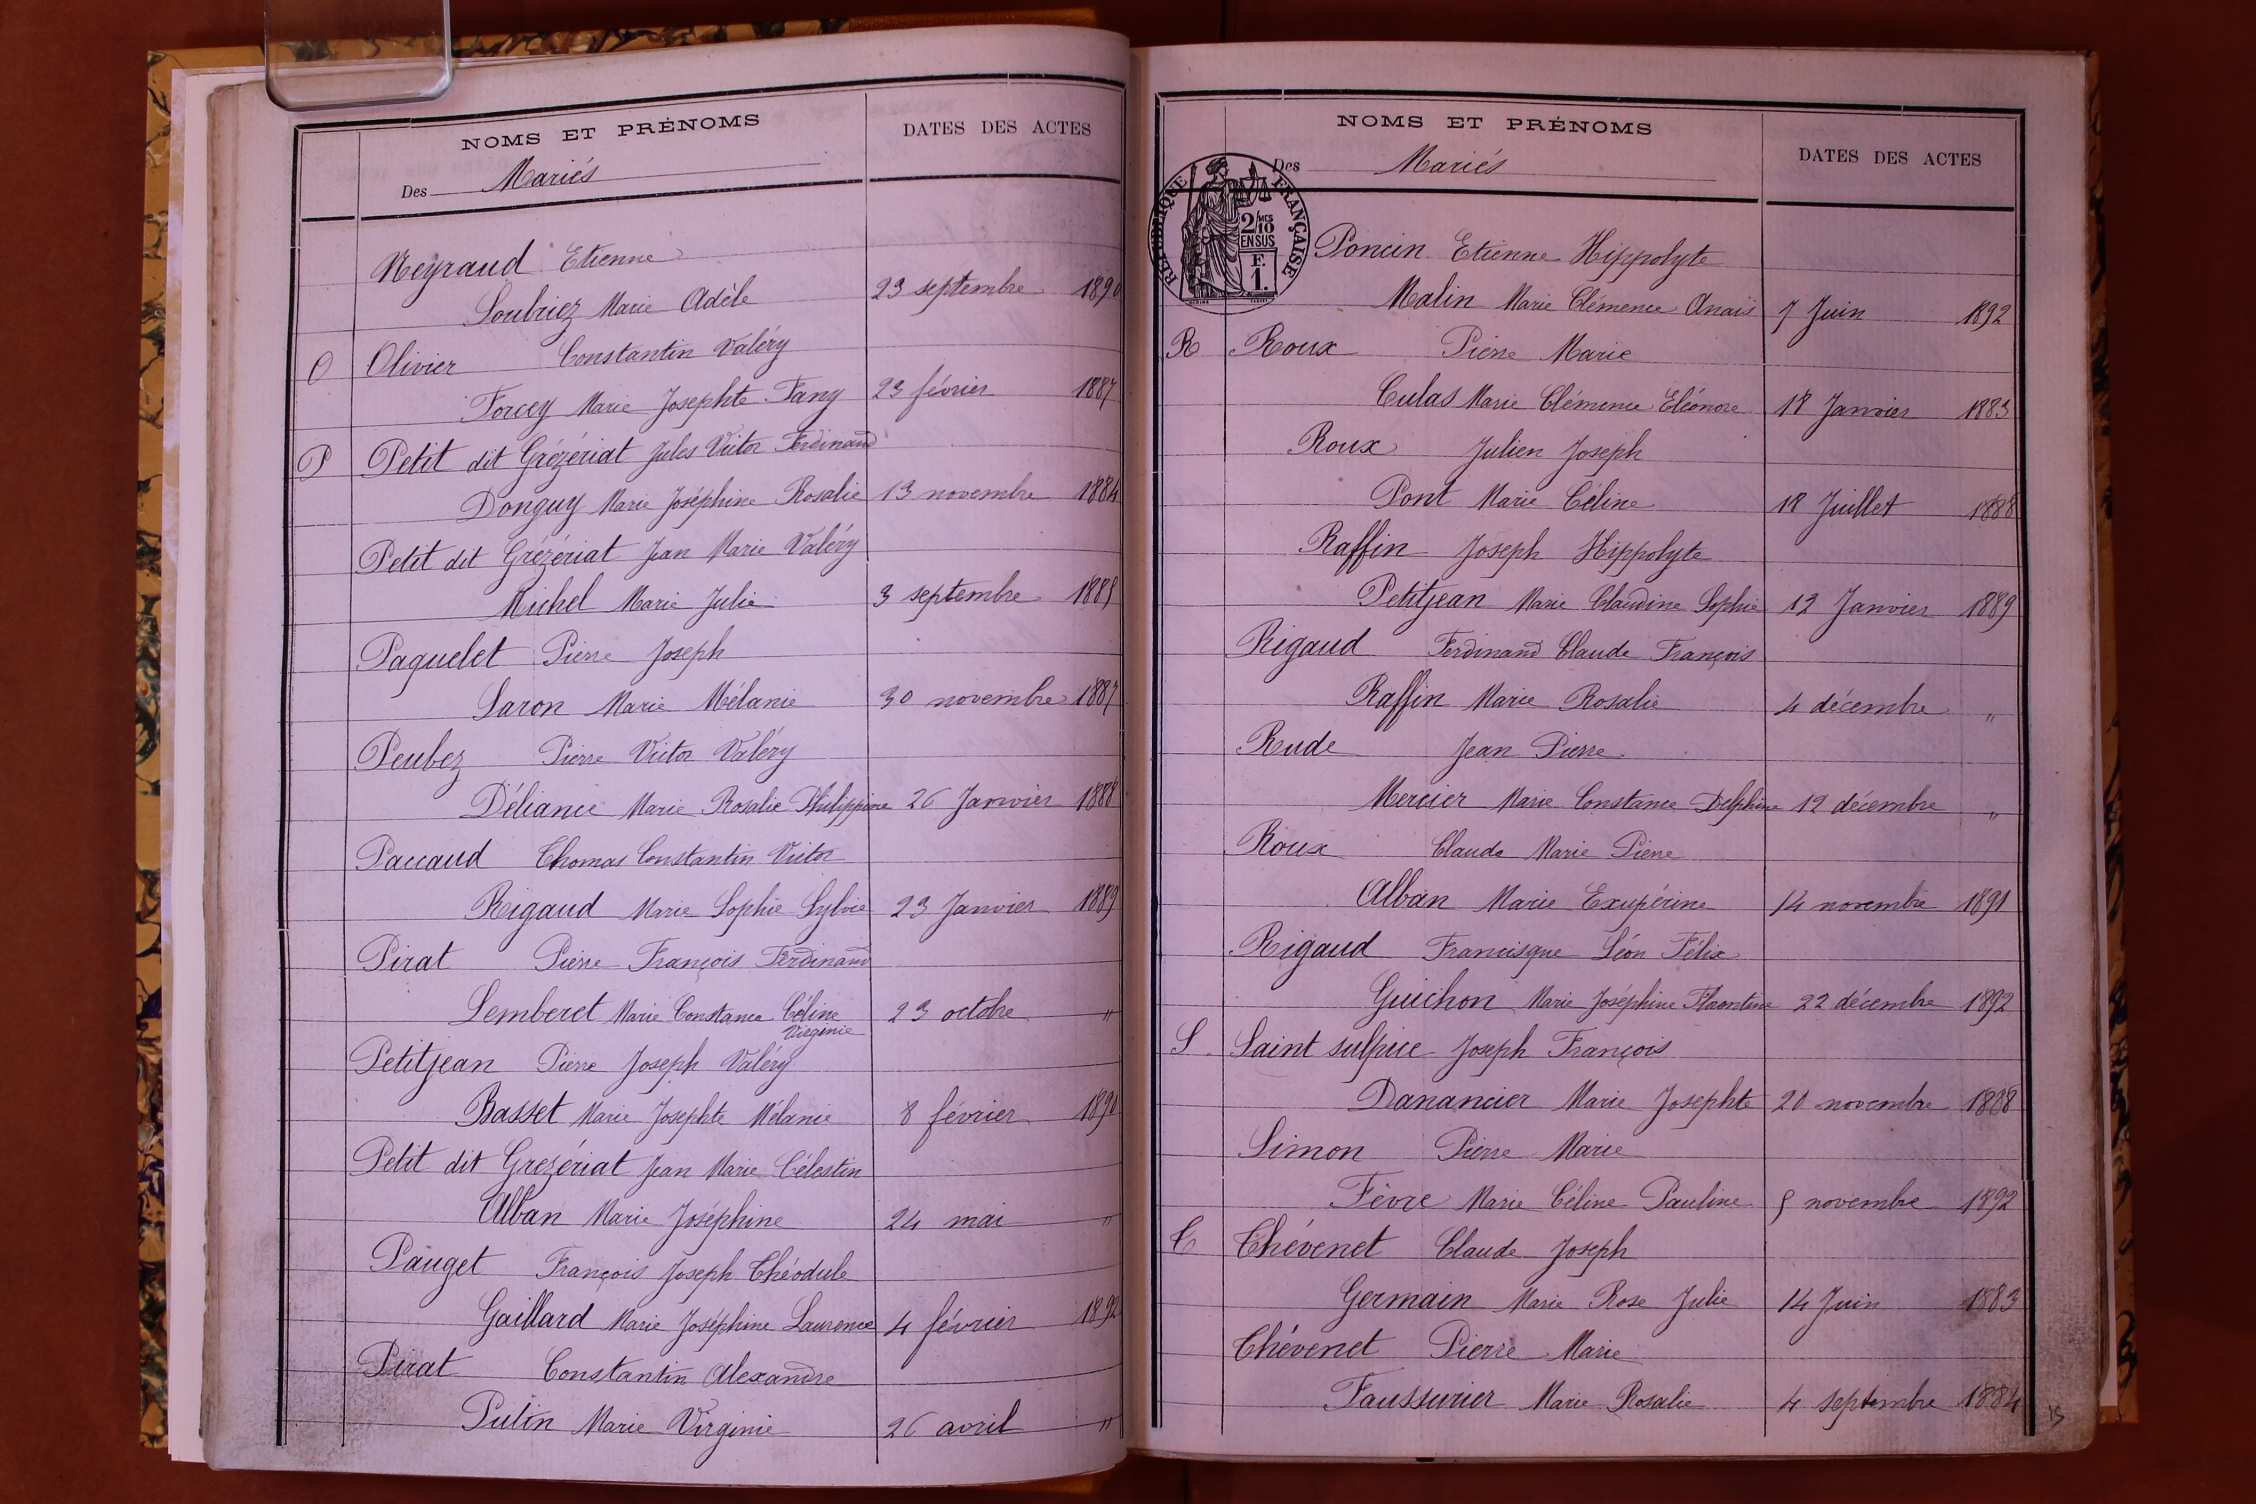 NOMS ET PRÉNOMS
DATES DES ACTES
Des Mariés
Neyraud Etienne
Soubriez Marie Adèle 23 septembre 1890
O Olivier Constantin Valéry
Forcey Marie Josephte Fany 23 février 1887
P Petit dit Grézériat Jules Victor Ferdinand
Donguy Marie Joséphine Rosalie 13 novembre 1884
Petit dit Grézériat Jean Marie Valéry
Michel Marie Julie 3 septembre 1885
Paquelet Pierre Joseph
Saron Marie Mélanie 30 novembre 1887
Peubez Pierre Victor Valéry
Déliance Marie Rosalie Philippine 26 Janvier 1888
Paccaud Thomas Constantin Victor
Rigaud Marie Sophie Sylvie 23 Janvier 1889
Pirat Pierre François Ferdinand
Lemberet Marie Constance Céline 23 octobre "
Virginie
Petitjean Pierre Joseph Valéry
Basset Marie Josephte Mélanie 8 février 1891
Petit dit Grezériat Jean Marie Célestin
Alban Marie Joséphine 24 mai "
Pauget François Joseph Théodule
Gaillard Marie Joséphine Laurence 4 février 1892
Pirat Constantin Alexandre
Putin Marie Virginie 26 avril "
NOMS ET PRÉNOMS
DATES DES ACTES
Des Mariés
RÉPUBLIQUE FRANÇAISE
2/10 MES
EN SUS
F.
1.
Poncin Etienne Hippolyte
Malin Marie Clémence Anaïs 7 Juin 1892
R Roux Pierre Marie
Culas Marie Clémence Eléonore 18 Janvier 1883
Roux Julien Joseph
Pont Marie Céline 18 Juillet 1888
Raffin Joseph Hippolyte
Petitjean Marie Claudine Sophie 12 Janvier 1889
Rigaud Ferdinand Claude François
Raffin Marie Rosalie 4 décembre "
Rude Jean Pierre
Mercier Marie Constance Delphine 12 décembre "
Roux Claude Marie Pierre
Alban Marie Exupérine 14 novembre 1891
Rigaud Francisque Léon Félix
Guichon Marie Joséphine 22 décembre 1892
S Saint sulpice Joseph François
Danancier Marie Josephte 20 novembre 1888
Simon Pierre Marie
Fèvre Marie Céline Pauline 5 novembre 1892
T Thévenet Claude Joseph
Germain Marie Rose Julie 14 Juin 1883
Thévenet Pierre Marie
Faussurier Marie Rosalie 4 septembre 1884
15